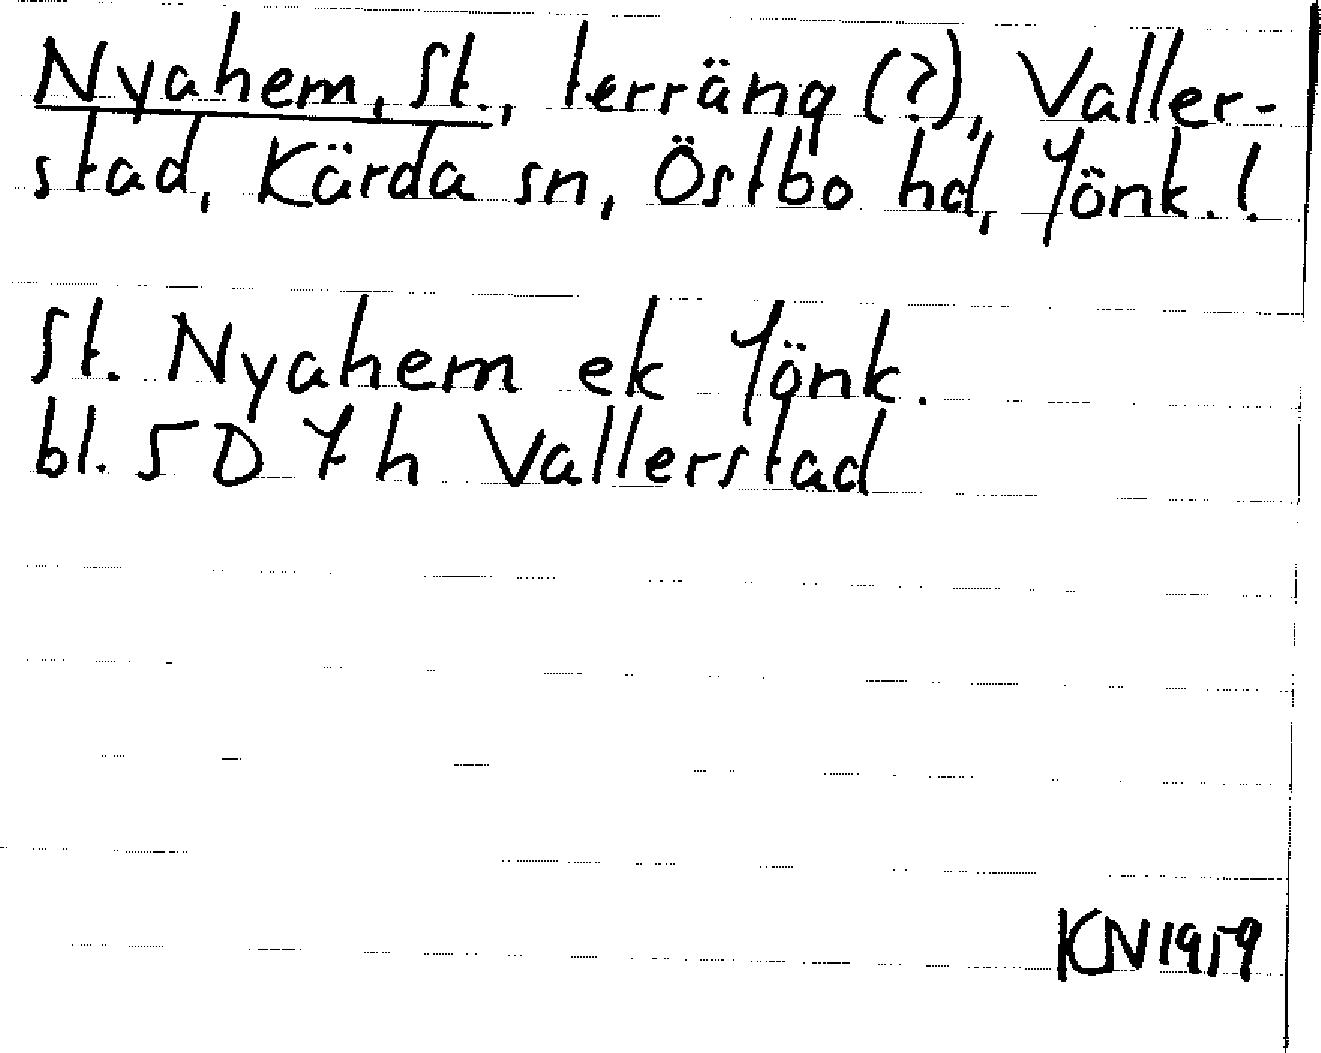 Nyahem, St., terräng (?), Valler-
stad, Kärda sn, Östbo hd, Jönk. l.
St. Nyahem ek Jönk.
bl. 5D 7h Vallerstad
KN 1959